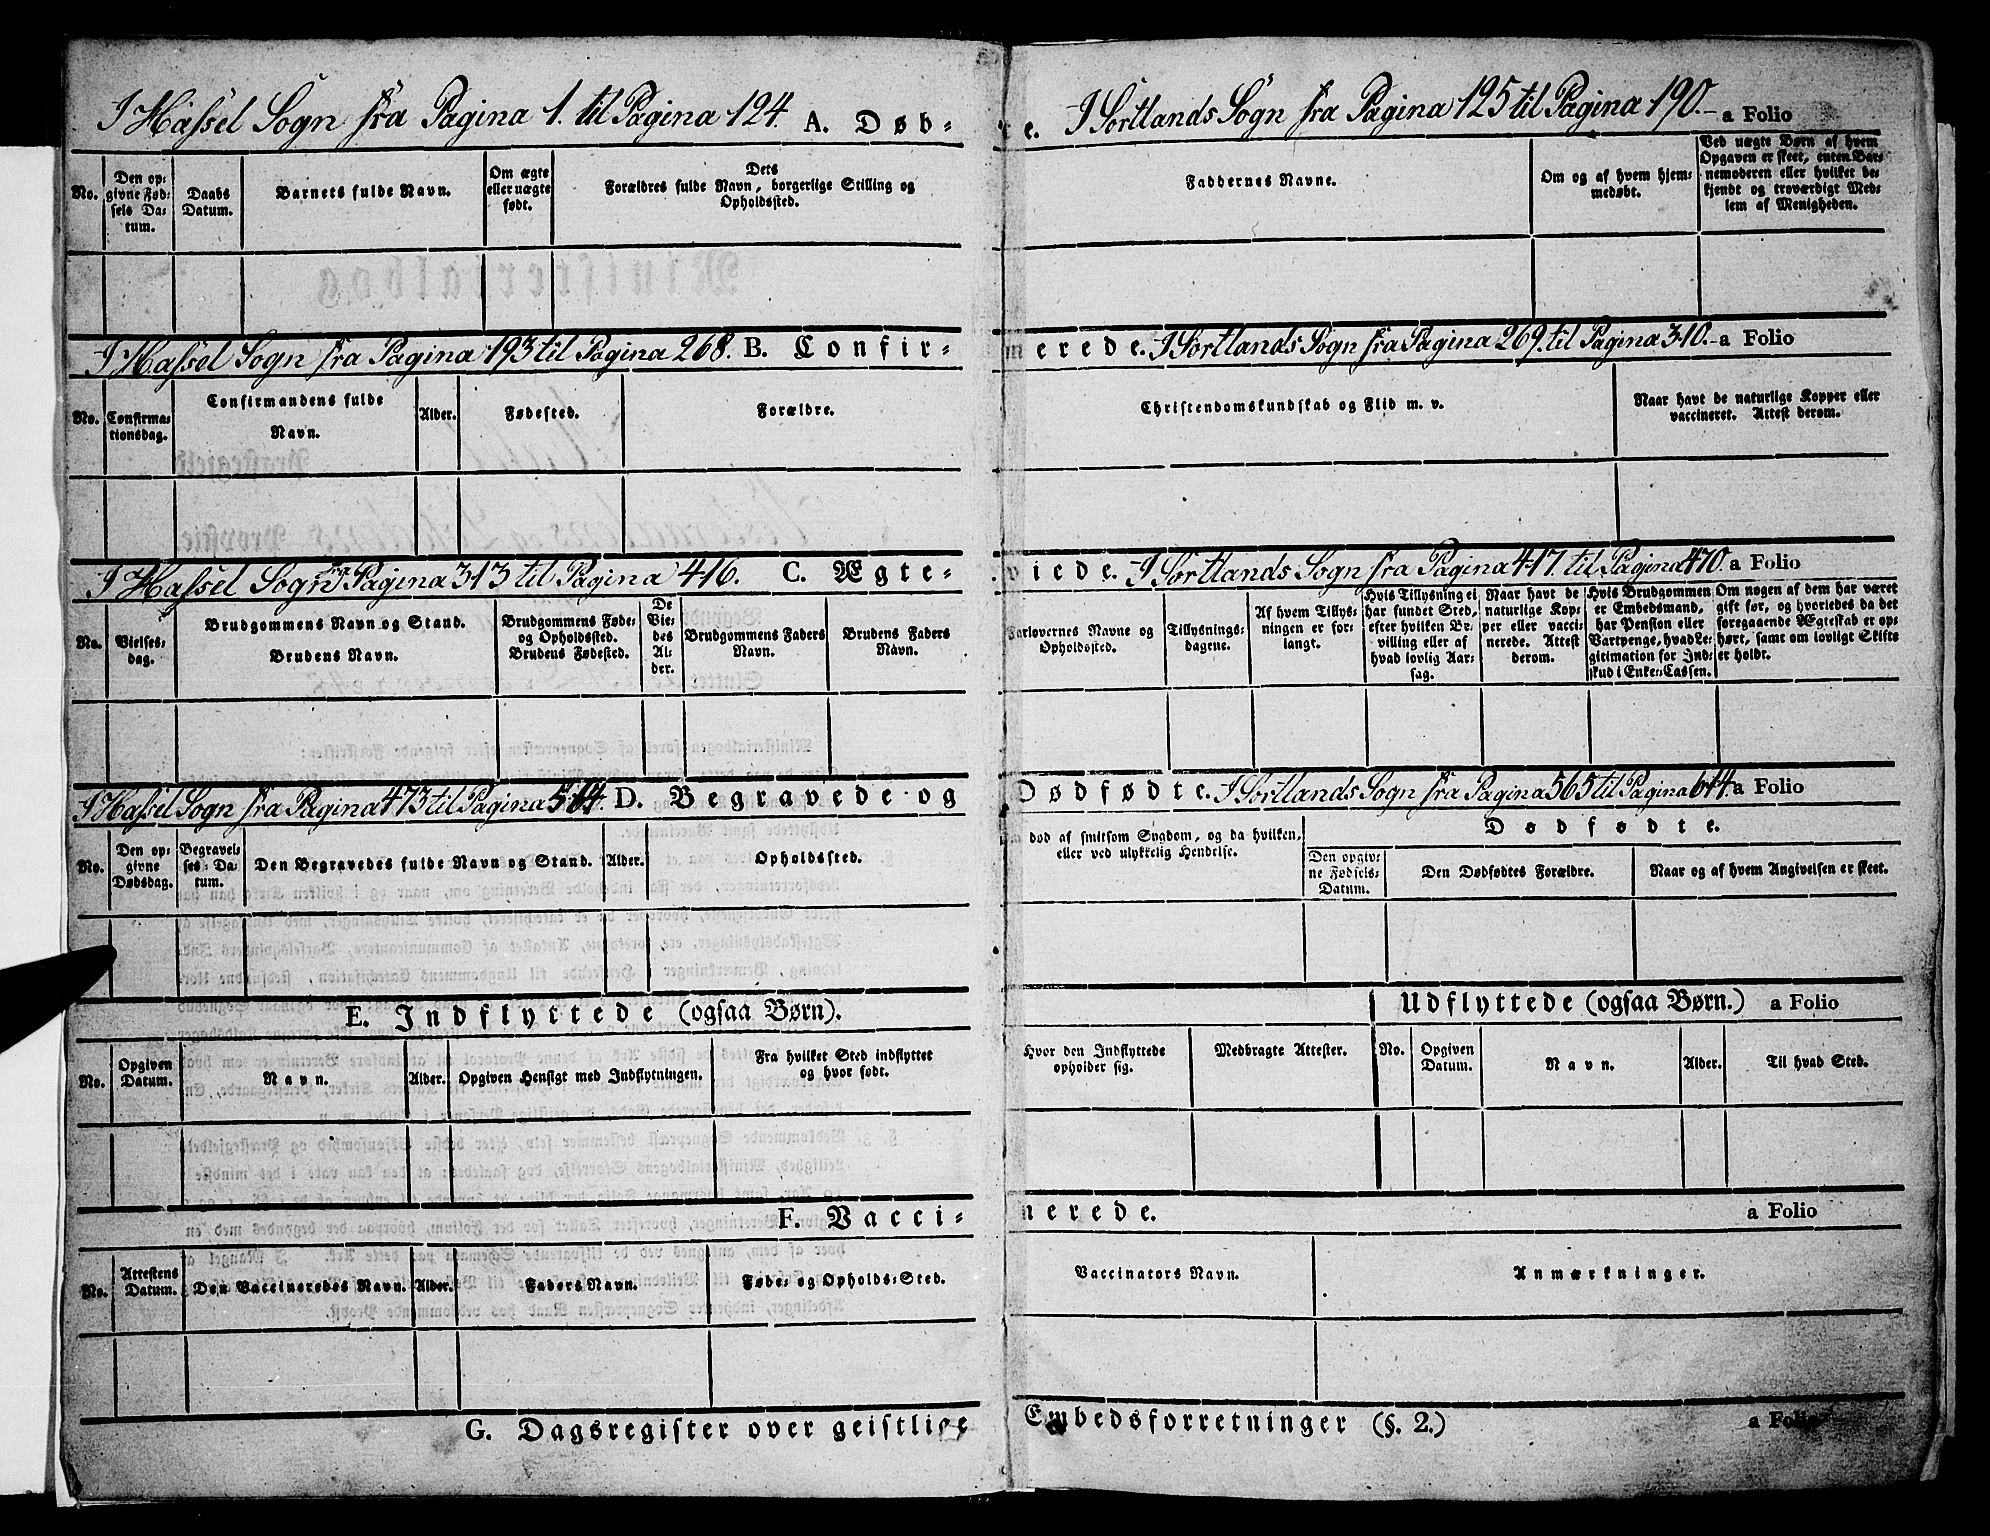 I Hassel Sogn fra Pagina 1. til Pagina 124. A. Døb-
te. I Sortlands Sogn fra Pagina 125 til Pagina 190. a Folio
No.
Den op-
givne Fød-
sels Da-
tum.
Daabs
Datum.
Barnets fulde Navn.
Om ægte
eller uægte
født.
Dets
Forældres fulde Navn, borgerlige Stilling og
Opholdssted.
Faddernes Navne.
Om og af hvem hjem-
medøbt.
Ved uægte Børn af hvem
Opgaven er skeet, enten Bar-
nemoderen eller hvilket be-
kjendt og troværdigt Med-
lem af Menigheden.
I Hassel Sogn fra Pagina 193 til Pagina 268. B. Confir-
merede. I Sortlands Sogn fra Pagina 269. til Pagina 310. a Folio
No.
Confirma-
tionsdag.
Confirmandens fulde
Navn.
Alder.
Fødested.
Forældre.
Christendomskundskab og Flid m. v.
Naar havt de naturlige Kopper eller
vaccineret. Attest derom.
I Hassel Sogn fra Pagina 313 til Pagina 416. C. Ægte-
viede. I Sortlands Sogn fra Pagina 417. til Pagina 470. a Folio
No.
Vielses-
dag.
Brudgommens Navn og Stand.
Brudens Navn.
Brudgommens Føde-
og Opholdssted.
Brudens Fødested.
De
Vie-
des
Al-
der.
Brudgommens Faders
Navn.
Brudens Faders
Navn.
Forlovernes Navne og
Opholdssted.
Tillysnings-
dagene.
Af hvem Tillys-
ningen er for-
langt.
Hvis Tillysning ei
har fundet Sted,
efter hvilken Be-
villing eller af
hvad lovlig Aar-
sag.
Naar havt de
naturlige Kop-
per eller vacci-
nerede. Attest
derom.
Hvis Brudgommen
er Embedsmand,
har Pension eller
Vartpenge, hvad Le-
gitimation for Ind-
skud i Enke-Cassen.
Om nogen af dem har været
gift før, og hvorledes da det
foregaaende Ægteskab er op-
hørt, samt om lovligt Skifte
er holdt.
I Hassel Sogn fra Pagina 473 til Pagina 564. D. Begravede og
Dødfødte. I Sortlands Sogn fra Pagina 565 til Pagina 614. a Folio
No.
Den op-
givne
Dødsdag.
Begravel-
ses-Da-
tum.
Den Begravedes fulde Navn og Stand.
Alder.
Opholdssted.
død af smitsom Sygdom, og da hvilken,
eller ved ulykkelig Hendelse.
Dødfødte.
Den opgiv-
ne Fødsels-
Datum.
Den Dødfødtes Forældre.
Naar og af hvem Angivelsen er skeet.
E. Indflyttede (ogsaa Børn).
Udflyttede (ogsaa Børn.) a Folio
No.
Opgiven
Datum.
Navn.
Alder.
Opgiven Hensigt med Indflytningen.
Fra hvilket Sted indflyttet
og hvor født.
Hvor den Indflyttede
opholder sig.
Medbragte Attester.
No.
Opgiven
Datum.
Navn.
Alder.
Til hvad Sted.
F. Vacci-
nerede. a Folio
No.
Attestens
Datum.
Den Vaccineredes Navn.
Alder.
Faders Navn.
Føde- og Opholds-Sted.
Vaccinators Navn.
Anmærkninger.
G. Dagsregister over geistlige
Embedsforretninger (§. 2.) a Folio